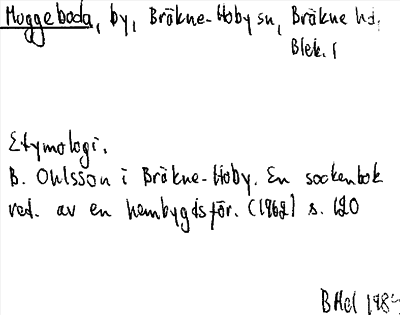 Moggeboda, by, Bräkne-Hoby sn, Bräkne hd,
Blek. l
Etymologi.
B. Ohlsson i Bräkne-Hoby. En sockenbok
red. av en hembygdsför. (1962) s. 120
BHel